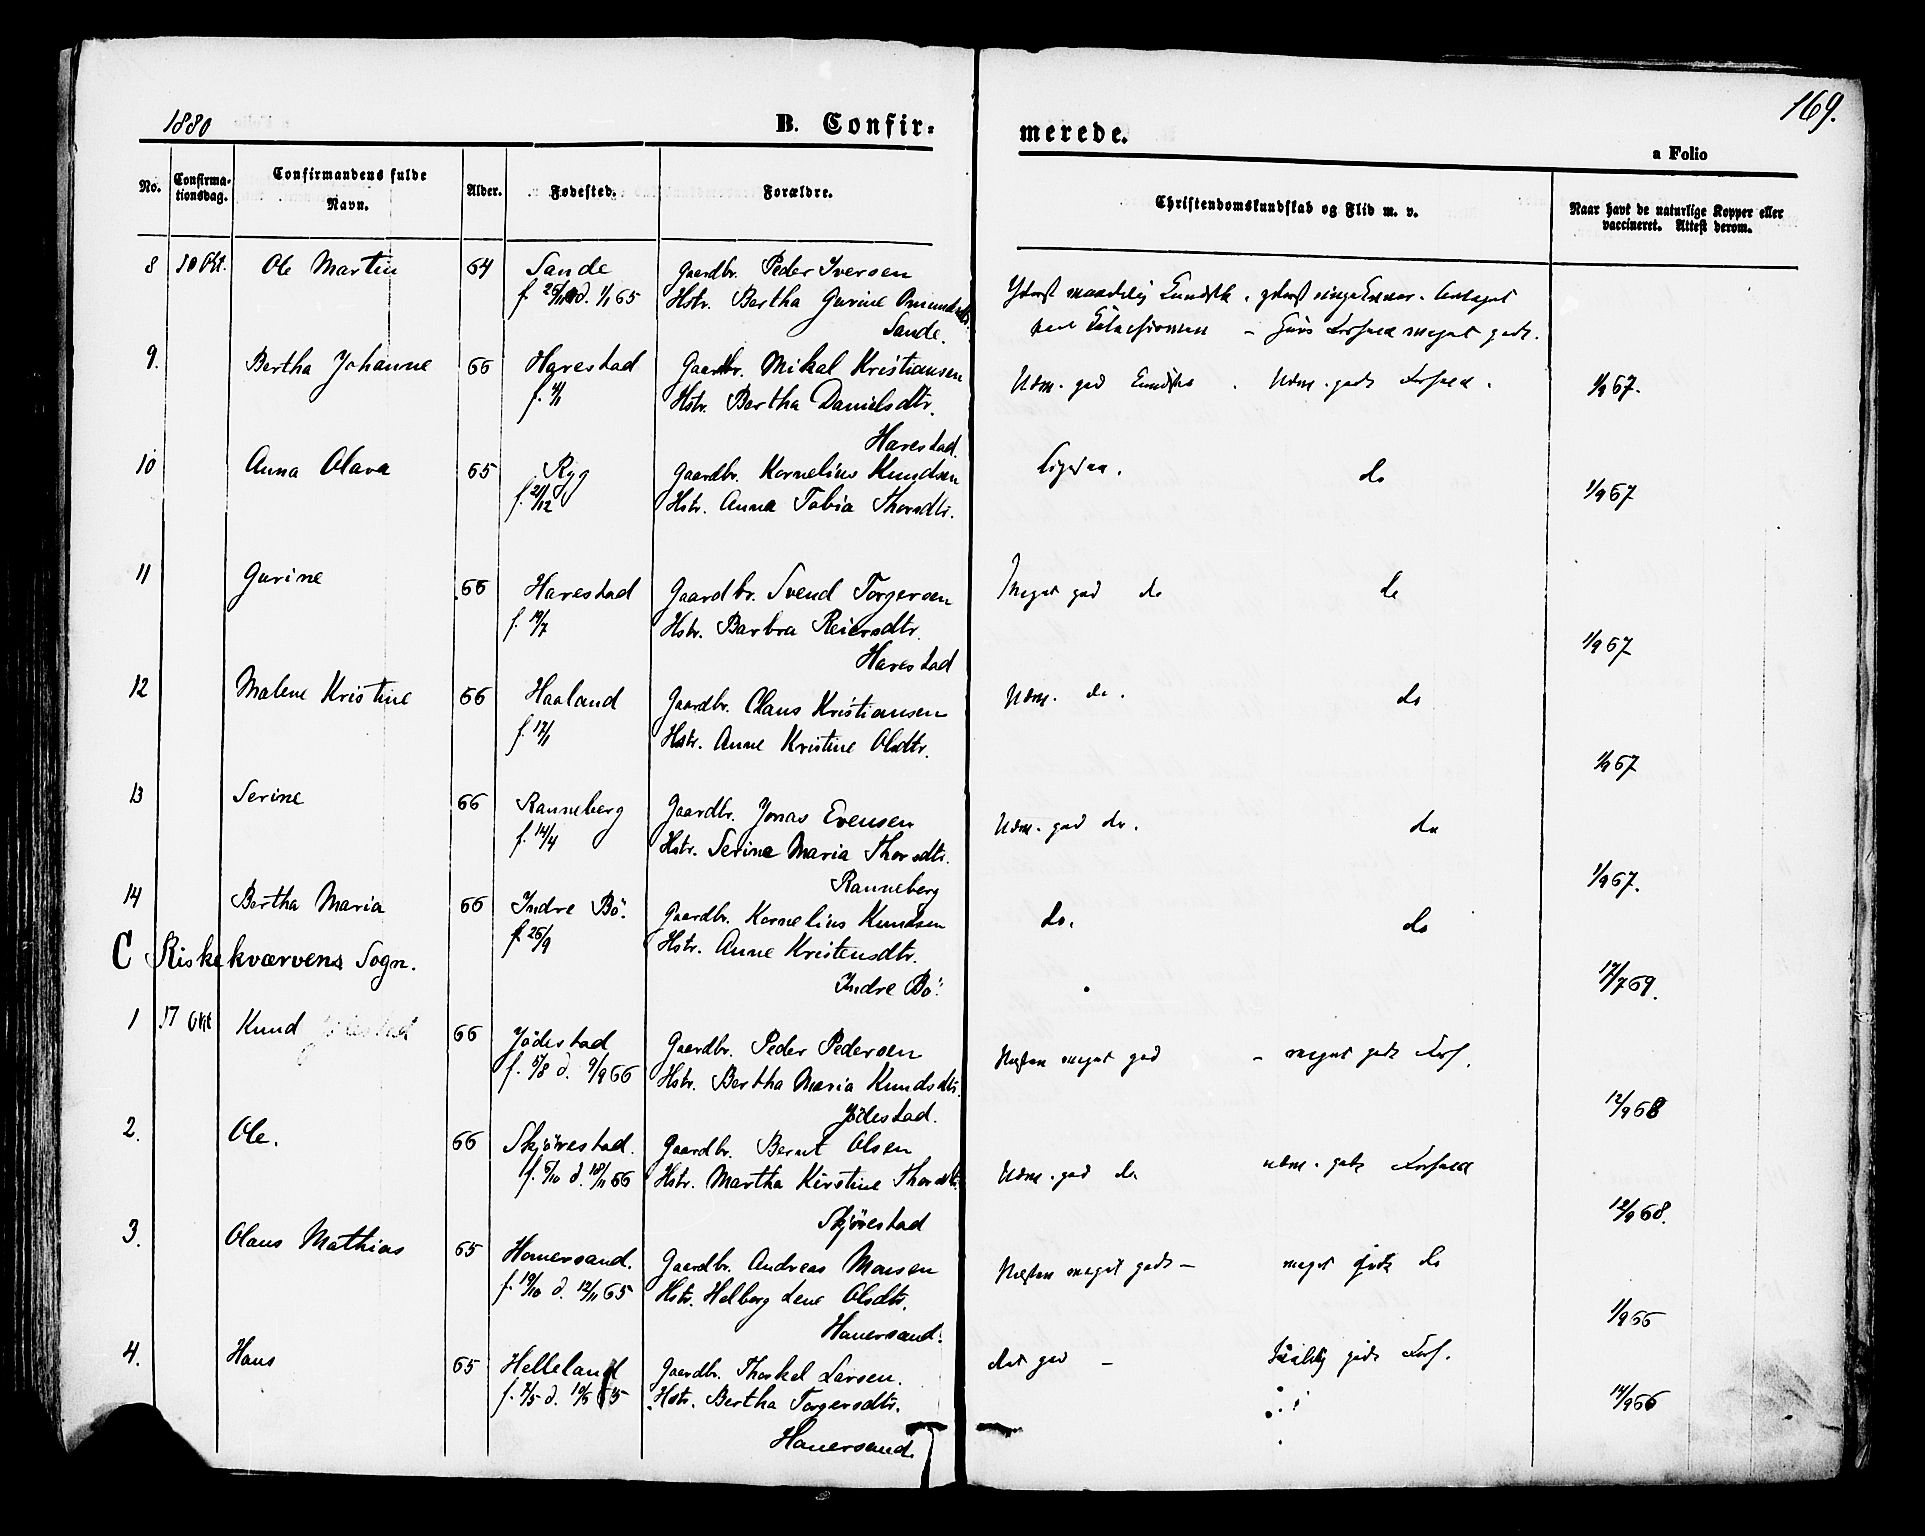 1880
B. Confir-
merede.
169.
a Folio
No.
Confirma-
tionsdag.
Confirmandens fulde
Navn.
Alder.
Fødested.
Forældre.
Christendomskundskab og Flid m. v.
Naar havt de naturlige Kopper eller
vaccineret. Attest derom.
8 10 Okt. Ole Martin 64 Sande Gaardbr. Peder Iversen
d. 1/1 65 Hstr. Bertha Gurine
Sande.
meget godt.
9. Bertha Johanne 66 Harestad Gaardbr. Mikal Kristiansen
f. Hstr. Bertha Danielsdtr.
Udm. god Kundsk. Udm. godt Forhold. 1/9 67.
Harestad.
10 Anna Olava 65 Ryg Gaardbr. Kornelius Knudsen
f. 21/12 Hstr. Anna Tobia Thorsdtr.
Ligesaa. do 1/9 67
11 Gurine 66 Harestad Gaardbr. Svend Torgersen
f. 19/7 Hstr. Barbra Reiersdtr.
Meget god do do 1/9 67
Harestad
12 Malene Kristine 66 Haaland Gaardbr. Claus Kristiansen
f. 17/1 Hstr. Anne Kristine Olsdtr.
Udm. do. do 1/9 67
13 Serine 66 Ranneberg Gaardbr. Jonas Evensen
f. 14/4 Hstr. Serine Maria Thorsdtr.
Udm. god do. do 1/9 67.
Ranneberg
14 Bertha Maria 66 Indre Bö. Gaardbr. Kornelius Knudsen
f. 26/9 Hstr. Anne Kristensdtr.
do. do 17/7 69.
Indre Bö.
C Riskekværvens Sogn.
1 17 Okt Knud 66 Jödestad Gaardbr. Peder Pedersen
f. 5/8 d. 9/9 66 Hstr. Bertha Maria Knudsdtr.
Næsten meget god – meget godt Forh. 12/9 68
Jödestad.
2. Ole. 66 Skjörestad. Gaardbr. Bernt Olsen
f. 5/10 d. 18/11 66 Hstr. Martha Kirstine Thorsdtr.
Udm. god do udm. godt Forhold 12/9 68.
Skjörestad
3. Olaus Mathias 65 Hanersand. Gaardbr. Andreas Monsen
f. 19/10 d. 12/11 65 Hstr. Helborg Lene Olsdtr.
Næsten meget godt – meget godt do 1/9 66
Hanersand.
4. Hans 65 Helleland Gaardbr. Thorkel Larsen.
Hstr. Bertha Torgersdtr.
god – godt Forh. 14/9 66
Hanersand.